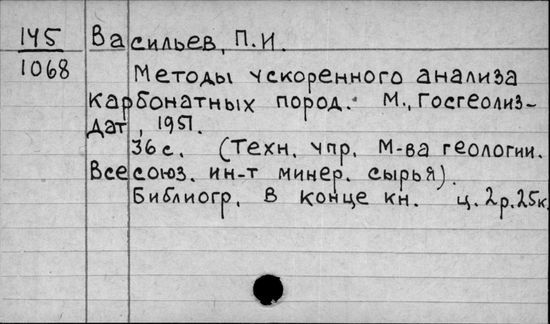 145 Васильев, П.И.
1068 Методы ускоренного анализа
карбонатных пород. М., Госгеолиз-
дат, 1951.
36 с. (Техн. упр. М-ва геологии.
Всесоюз. ин-т минер. сырья).
Библиогр. в конце кн. ц. 2р. 25к.